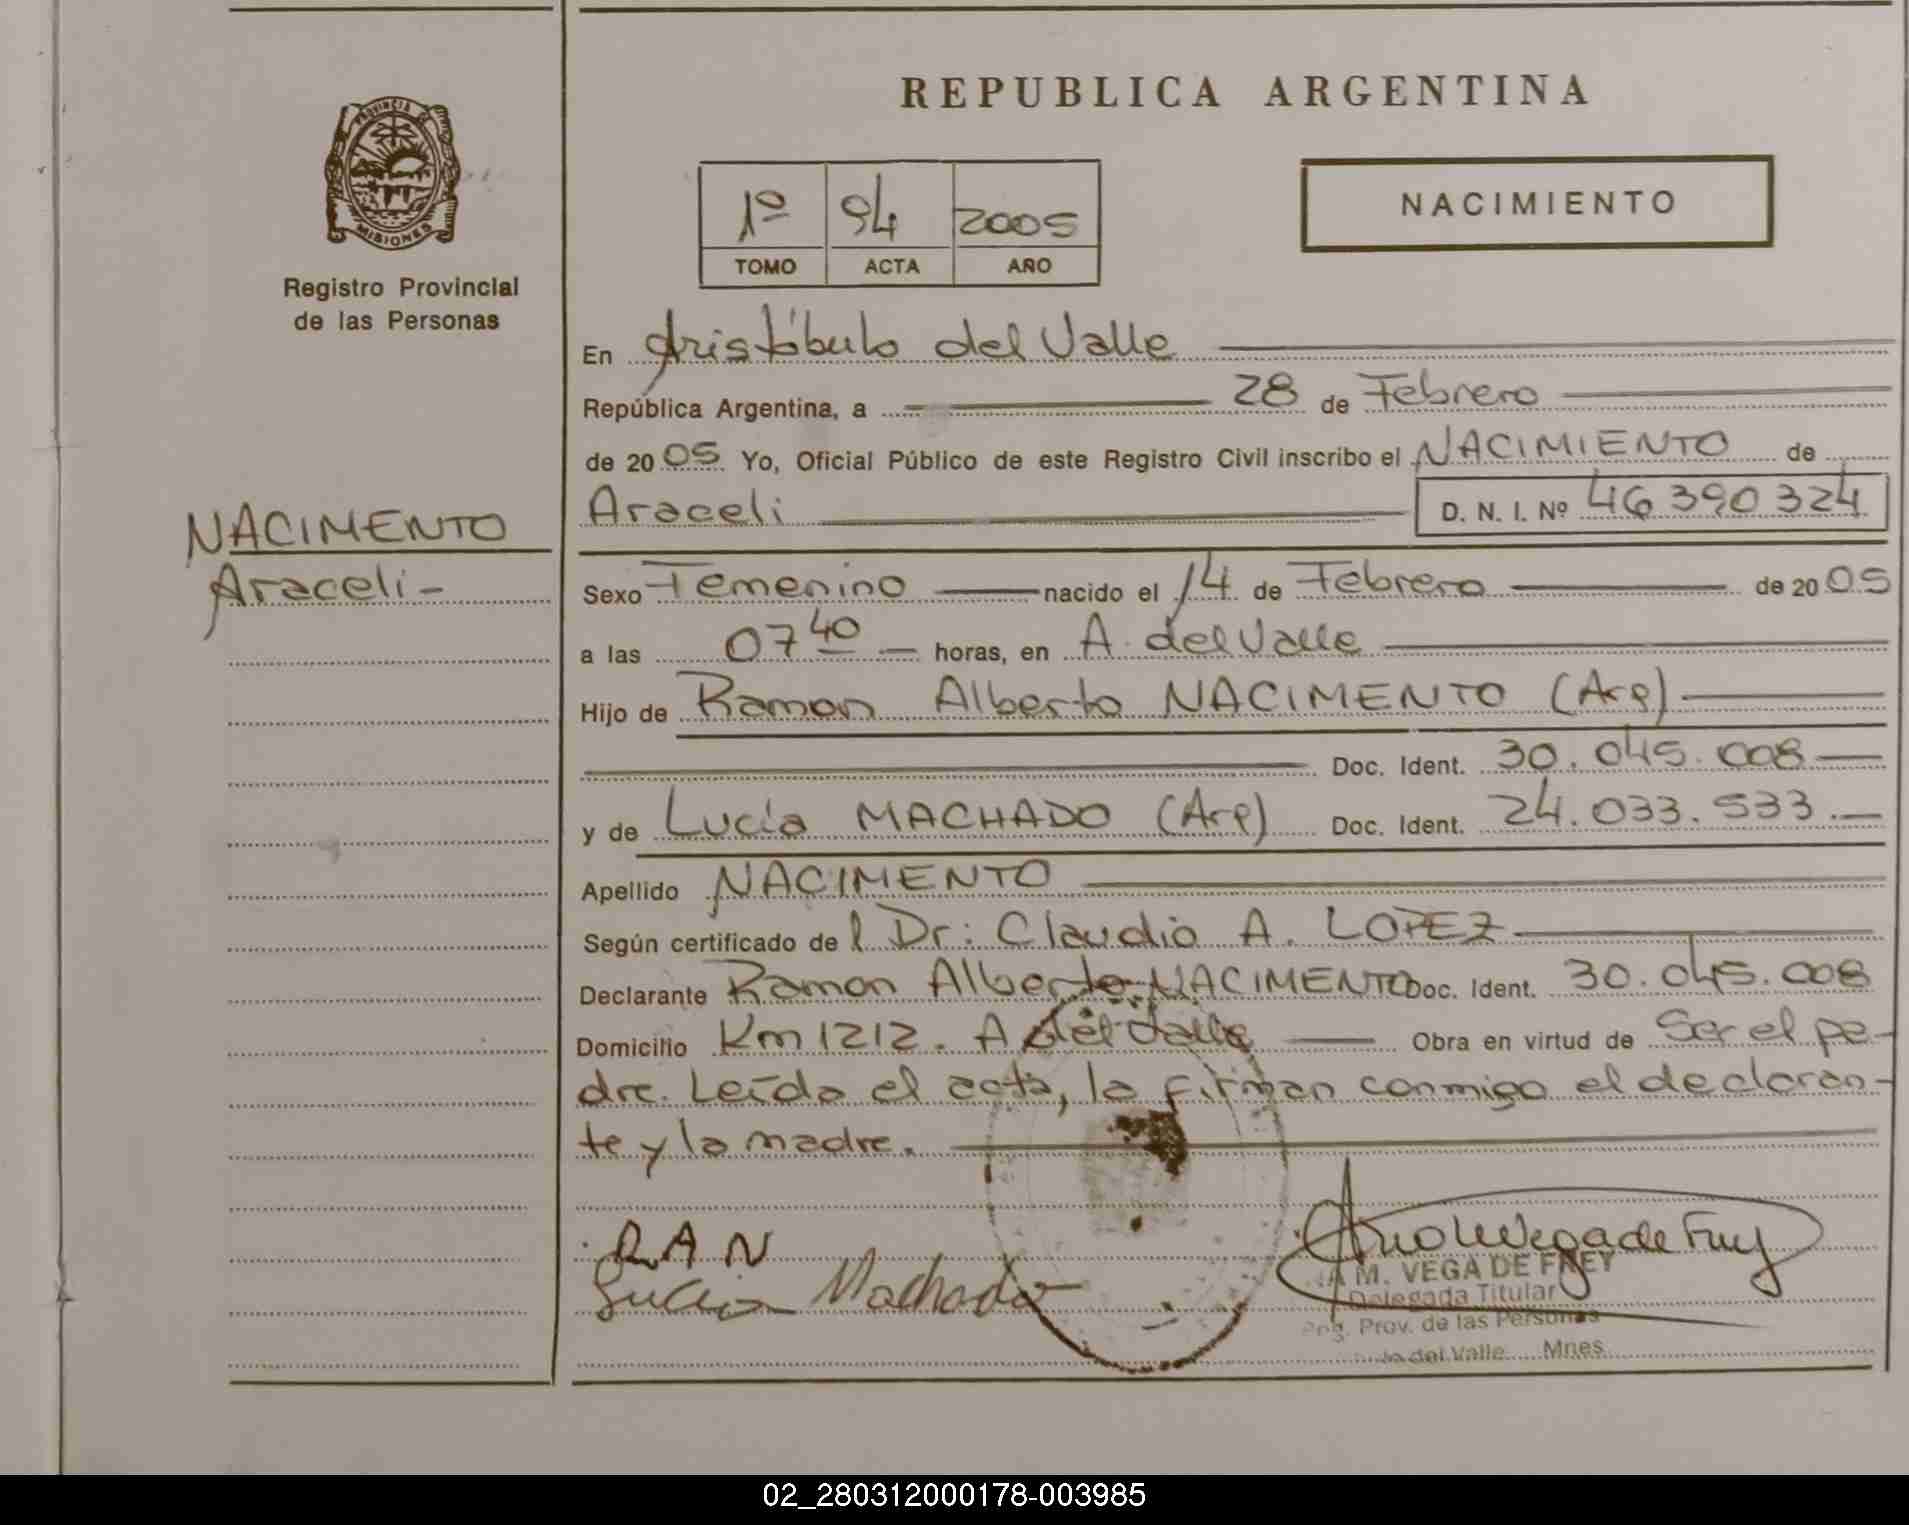 REPUBLICA ARGENTINA
PROVINCIA DE
MISIONES
Registro Provincial
de las Personas
1º 94 2005
TOMO ACTA AÑO
NACIMIENTO
En Aristóbulo del Valle
República Argentina, a 28 de Febrero
de 2005 Yo, Oficial Público de este Registro Civil inscribo el NACIMIENTO de
Araceli D. N. I. Nº 46390324
NACIMENTO
Araceli-
Sexo Femenino nacido el 14 de Febrero de 2005
a las 07 40 horas, en A. del Valle
Hijo de Ramon Alberto NACIMENTO (Arg)
Doc. Ident. 30.045.008
y de Lucía MACHADO (Arg) Doc. Ident. 24.033.533.
Apellido NACIMENTO
Según certificado del Dr: Claudio A. LOPEZ
Declarante Ramon Alberto NACIMENTO Doc. Ident. 30.045.008
Domicilio Km 1212. A del Valle Obra en virtud de Ser el pa-
dre. Leída el acta, la firman conmigo el declaran-
te y la madre.
RAN
Lucia Machado
Vega de Frey
M. VEGA DE FREY
Delegada Titular
Reg. Prov. de las Personas
del Valle Mnes
02_280312000178-003985